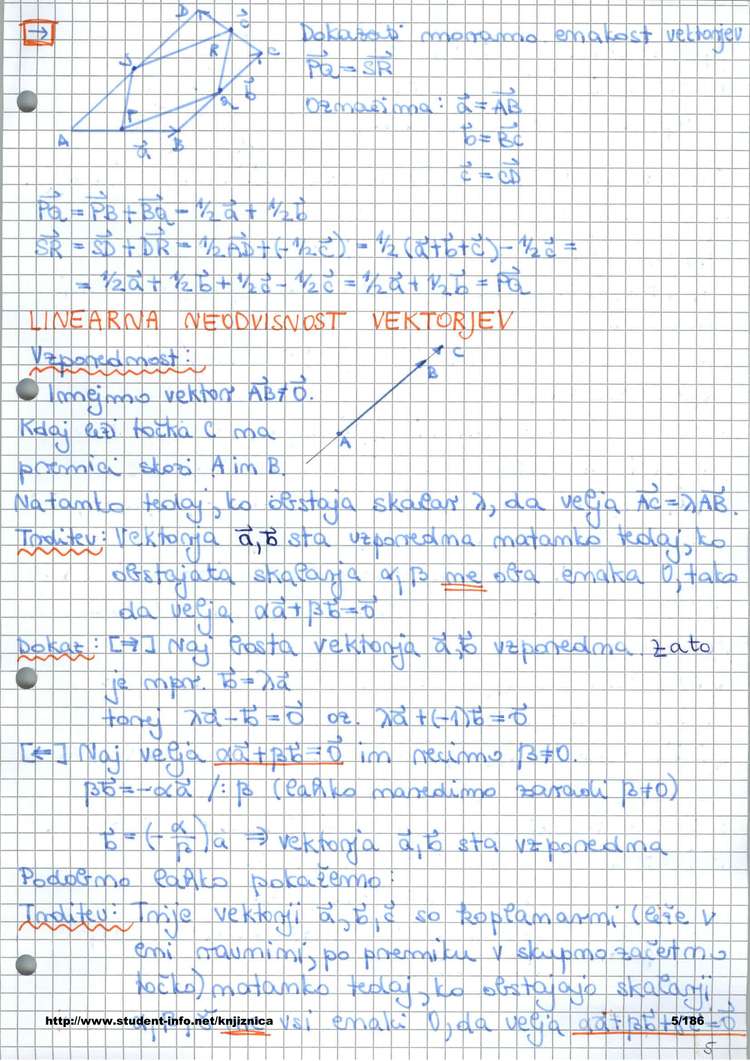 →
Dokazati moramo enakost vektorjev
P⃗Q = S⃗R
Označimo: a⃗ = A⃗B
b⃗ = B⃗C
c⃗ = C⃗D
D c⃗ S R C Q b⃗ A P a⃗ B
P⃗Q = P⃗B + B⃗Q = 1/2 a⃗ + 1/2 b⃗
S⃗R = S⃗D + D⃗R = 1/2 A⃗D + (-1/2 c⃗) = 1/2 (a⃗+b⃗+c⃗) - 1/2 c⃗ =
= 1/2 a⃗ + 1/2 b⃗ + 1/2 c⃗ - 1/2 c⃗ = 1/2 a⃗ + 1/2 b⃗ = P⃗Q
LINEARNA NEODVISNOST VEKTORJEV
Vzporednost:
C
B
A
Imejmo vektor A⃗B ≠ 0⃗.
Kdaj leži točka C na
premici skozi A in B.
Natanko tedaj, ko obstaja skalar λ, da velja A⃗C = λA⃗B.
Trditev: Vektorja a⃗, b⃗ sta vzporedna natanko tedaj, ko
obstajata skalarja α, β ne oba enaka 0, tako
da velja αa⃗ + βb⃗ = 0⃗
Dokaz: [→] Naj bosta vektorja a⃗, b⃗ vzporedna. zato
je npr. b⃗ = λa⃗
torej λa⃗ - b⃗ = 0⃗ oz. λa⃗ + (-1)b⃗ = 0⃗
[←] Naj velja αa⃗ + βb⃗ = 0⃗ in recimo β ≠ 0.
βb⃗ = -αa⃗ /: β (lahko naredimo zaradi β ≠ 0)
b⃗ = (-α/β)a⃗ ⇒ vektorja a⃗, b⃗ sta vzporedna
Podobno lahko pokažemo:
Trditev: Trije vektorji a⃗, b⃗, c⃗ so koplanarni (leže v
eni ravnini, po premiku v skupno začetno
točko) natanko tedaj, ko obstajajo skalarji
ne vsi enaki 0, da velja αa⃗ + βb⃗ + c⃗ = 0⃗
http://www.student-info.net/knjiznica
5/186
5